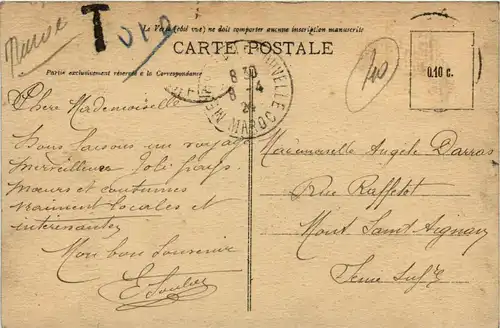 Maroc
T
0,10
Le Verso (côté vue) ne doit comporter aucune inscription manuscrite
CARTE POSTALE
Partie exclusivement réservée à la Correspondance
40
0.10 c.
8 30
8 - 4
24
MAROC
Chère Mademoiselle
Nous faisons un voyage
merveilleux Joli pays.
mœurs et coutumes
vraiment locales et
intéressantes
Mon bon Souvenir
Mademoiselle Angèle Darras
Rue Raffetot
Mont Saint Aignan
Seine Inf^re